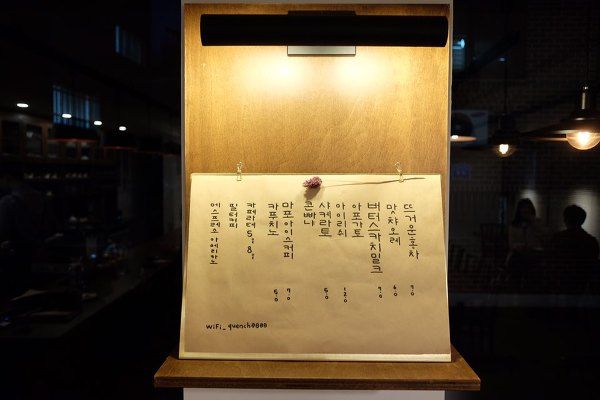 에스프레소 아메리카노
필터커피
카페라떼 5, 8,
카푸치노 50
마포아이스커피 70
콘빠나
샤케라토 50
아이리쉬 120
아포가토
버터스카치밀크 70
맛차오레 60
뜨거운홍차 70
WiFi_quench0808